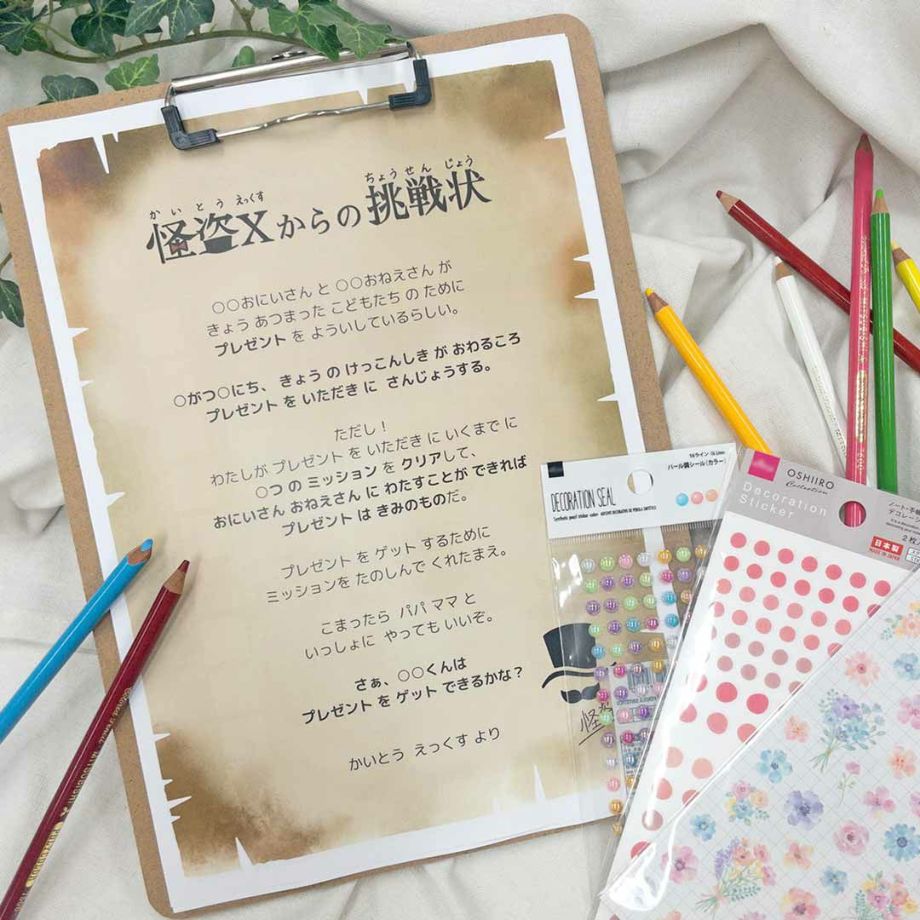 かいとうえっくす ちょうせんじょう
怪盗Xからの挑戦状
○○おにいさん と ○○おねえさん が
きょう あつまった こどもたち の ために
プレゼント を よういしているらしい。
○がつ○にち、 きょう の けっこんしき が おわるころ
プレゼント を いただき に さんじょうする。
ただし！
わたしが プレゼント を いただき に いくまで に
○つ の ミッション を クリアして、
おにいさん おねえさん に わたすことが できれば
プレゼント は きみのものだ。
プレゼント を ゲット するために
ミッションを たのしんで くれたまえ。
こまったら パパ ママ と
いっしょに やっても いいぞ。
さぁ、○○くんは
プレゼント を ゲット できるかな？
かいとう えっくす より
怪
パール調シール（カラー）
DECORATION SEAL
OSHIIRO
Collection
Decoration
Sticker
日本製
MADE IN JAPAN